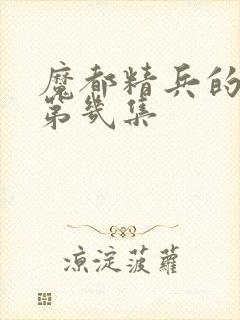 魔都精兵的
第几集
凉淀菠萝